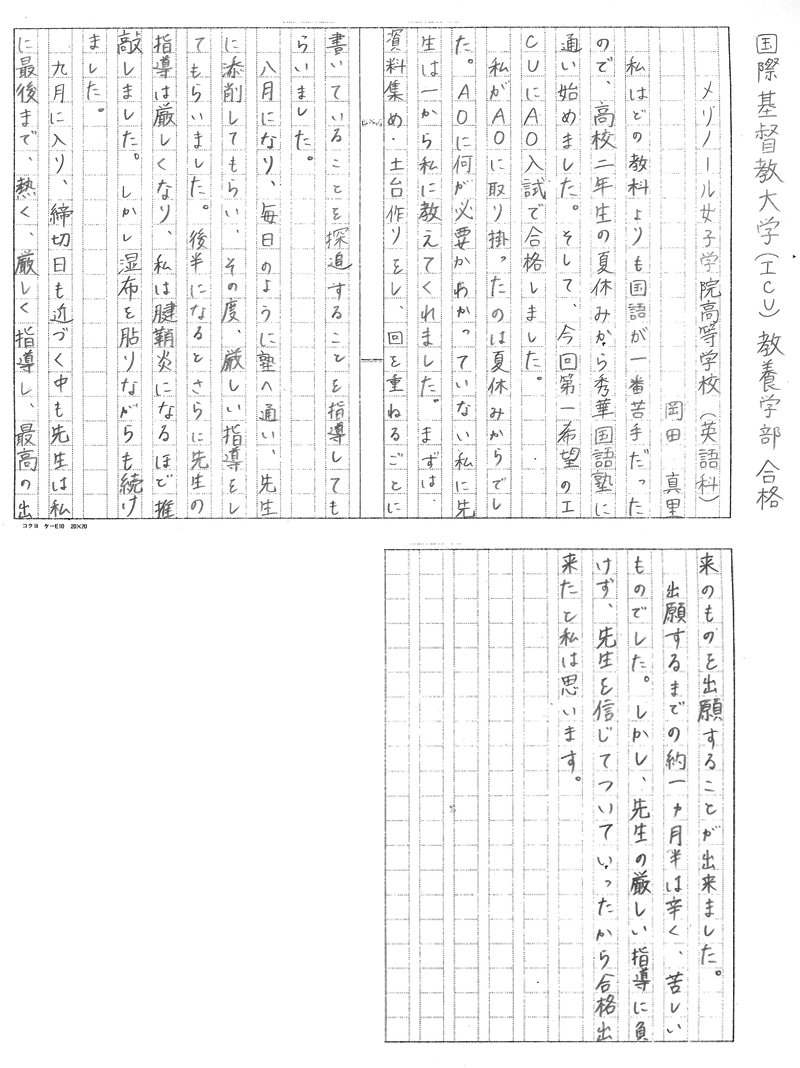 国際基督教大学（ICU）教養学部 合格
メリノール女子学院高等学校（英語科）
岡田 真里
私はどの教科よりも国語が一番苦手だった
ので、高校二年生の夏休みから秀華国語塾に
通い始めました。そして、今回第一希望のI
CUにAO入試で合格しました。
私がAOに取り掛ったのは夏休みからでし
た。AOに何が必要かわかっていない私に先
生は一から私に教えてくれました。まずは
資料集め・土台作りをし、回を重ねるごとに
書いていることを探追することを指導しても
らいました。
八月になり、毎日のように塾へ通い、先生
に添削してもらい、その度、厳しい指導をし
てもらいました。後半になるとさらに先生の
指導は厳しくなり、私は腱鞘炎になるほど推
敲しました。しかし湿布を貼りながらも続け
ました。
九月に入り、締切日も近づく中も先生は私
に最後まで、熱く、厳しく指導し、最高の出
コクヨ ケーE10 20×20
来のものを出願することが出来ました。
出願するまでの約一ヵ月半は辛く、苦しい
ものでした。しかし、先生の厳しい指導に負
けず、先生を信じてついていったから合格出
来たと私は思います。